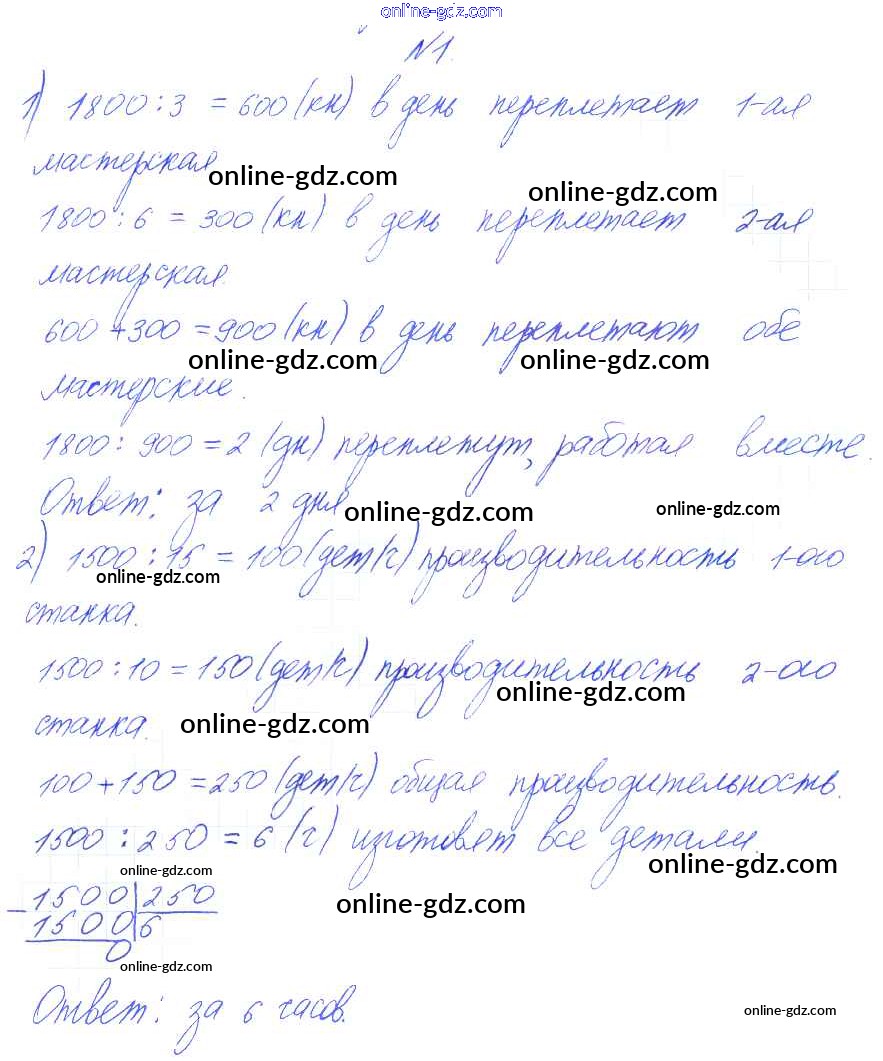 online-gdz.com
№1.
1) 1800 : 3 = 600 (кн) в день переплетает 1-ая
мастерская
online-gdz.com
online-gdz.com
1800 : 6 = 300 (кн) в день переплетает 2-ая
мастерская.
600 + 300 = 900 (кн) в день переплетают обе
online-gdz.com online-gdz.com
мастерские.
1800 : 900 = 2 (дн) переплетут, работая вместе.
Ответ: за 2 дня
online-gdz.com online-gdz.com
2) 1500 : 15 = 100 (дет/ч) производительность 1-ого
online-gdz.com
станка.
1500 : 10 = 150 (дет/ч) производительность 2-ого
online-gdz.com
станка.
online-gdz.com
100 + 150 = 250 (дет/ч) общая производительность.
1500 : 250 = 6 (ч) изготовят все детали.
online-gdz.com
online-gdz.com
- 1500 | 250
1500 | 6
online-gdz.com
0
online-gdz.com
Ответ: за 6 часов.
online-gdz.com